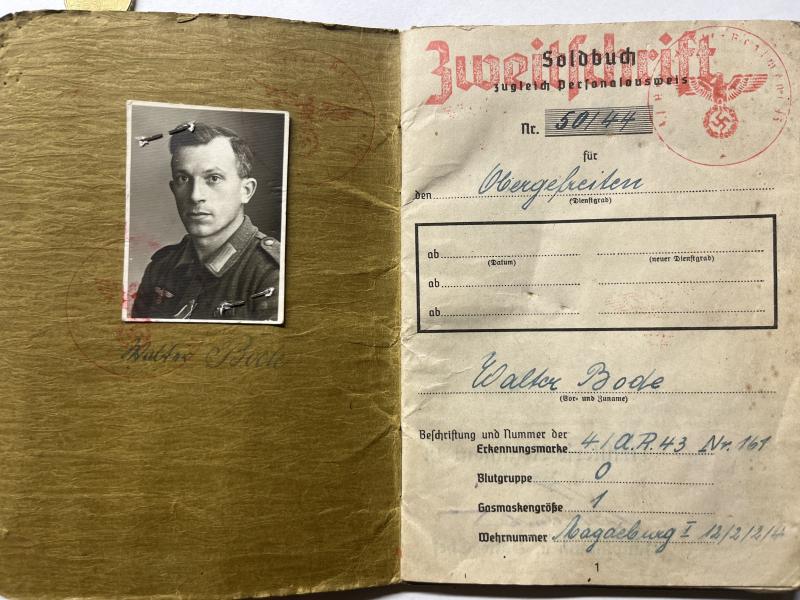 Walter Bode
Zweitschrift
Soldbuch
zugleich Personalausweis
Nr. 50/44
für
den Obergefreiten
(Dienstgrad)
ab
(Datum) (neuer Dienstgrad)
ab
ab
Walter Bode
(Vor- und Zuname)
Beschriftung und Nummer der
Erkennungsmarke 4./A.R.43 Nr. 161
Blutgruppe O
Gasmaskengröße 1
Wehrnummer Magdeburg I 12/2/2/4
1